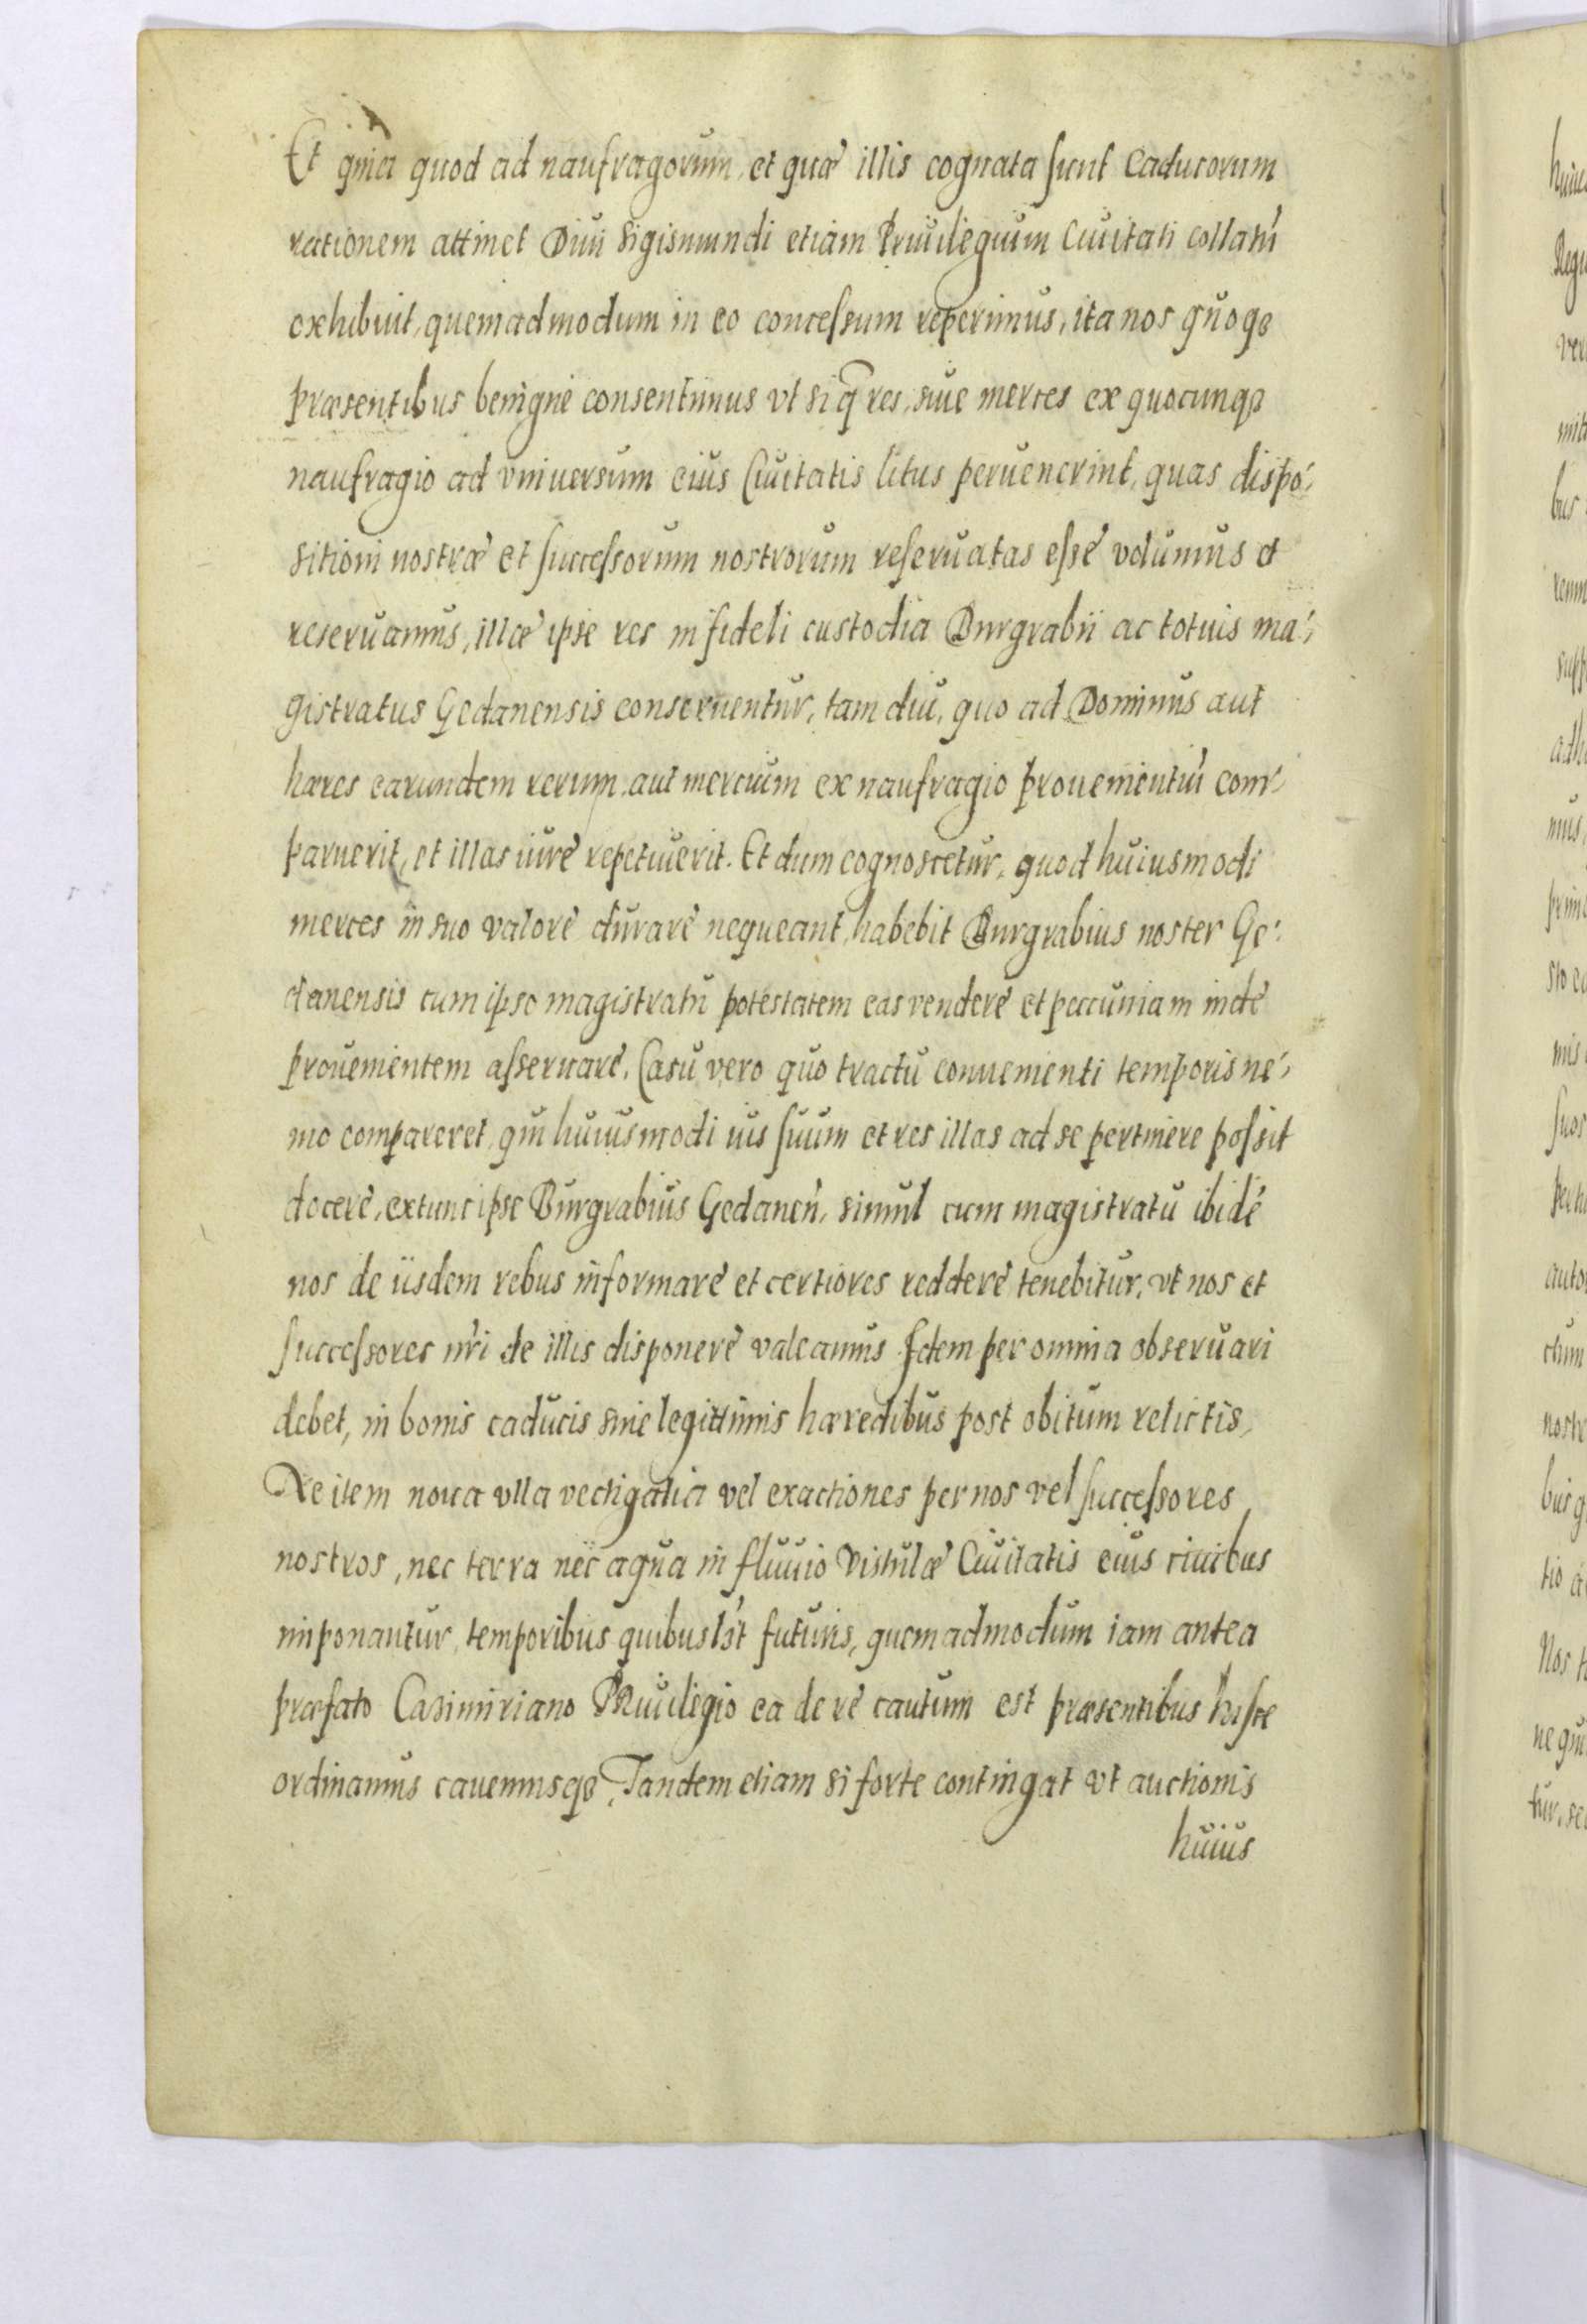 Et qma quod ad naufragorum, et quæ illis cognata sunt Caducorum
rationem attinet Diui Sigismundi etiam Priuilegium Ciuitati collatũ
exhibuit, quemadmodum in eo concessum reperimus, ita nos quoqȝ
præsentibus benigne consentimus vt si q̃ res, siue merces ex quocunqȝ
naufragio ad vniuersum eius Ciuitatis litus peruenerint, quas dispo-
sitioni nostræ et successorum nostrorum reseruatas esse volumus et
reseruamus, illæ ipse res in fideli custodia Burgrabii ac totius ma-
gistratus Gedanensis conseruentur, tam diu, quo ad Dominus aut
hæres earundem rerum, aut mercium ex naufragio prouenientiũ com-
paruerit, et illas iure repetiuerit. Et dum cognoscetur, quod huiusmodi
merces in suo valore durare nequeant, habebit Burgrabius noster Ge-
danensis cum ipso magistratu potestatem eas vendere et pecuniam inde
prouenientem asseruare. Casu vero quo tractu conuenienti temporis ne-
mo compareret qui huiusmodi ius suum et res illas ad se pertinere possit
docere, extunc ipse Burgrabius Gedaneñ, simul cum magistratu ibidẽ
nos de iisdem rebus informare et certiores reddere tenebitur, vt nos et
successores nr̃i de illis disponere valeamus Idem per omnia obseruari
debet, in bonis caducis sine legittimis hæredibus post obitum relictis,
Ne item noua vlla vectigalia vel exactiones per nos vel successores
nostros, nec terra nec aqua in fluuio Vistulæ Ciuitatis eius ciuibus
imponantur, temporibus quibusl't futuris, quemadmodum iam antea
præfato Casimiriano Priuilegio ea de re cautum est præsentibus hisce
ordinamus cauemusqȝ, Tandem etiam si forte contingat vt auctionis
huius